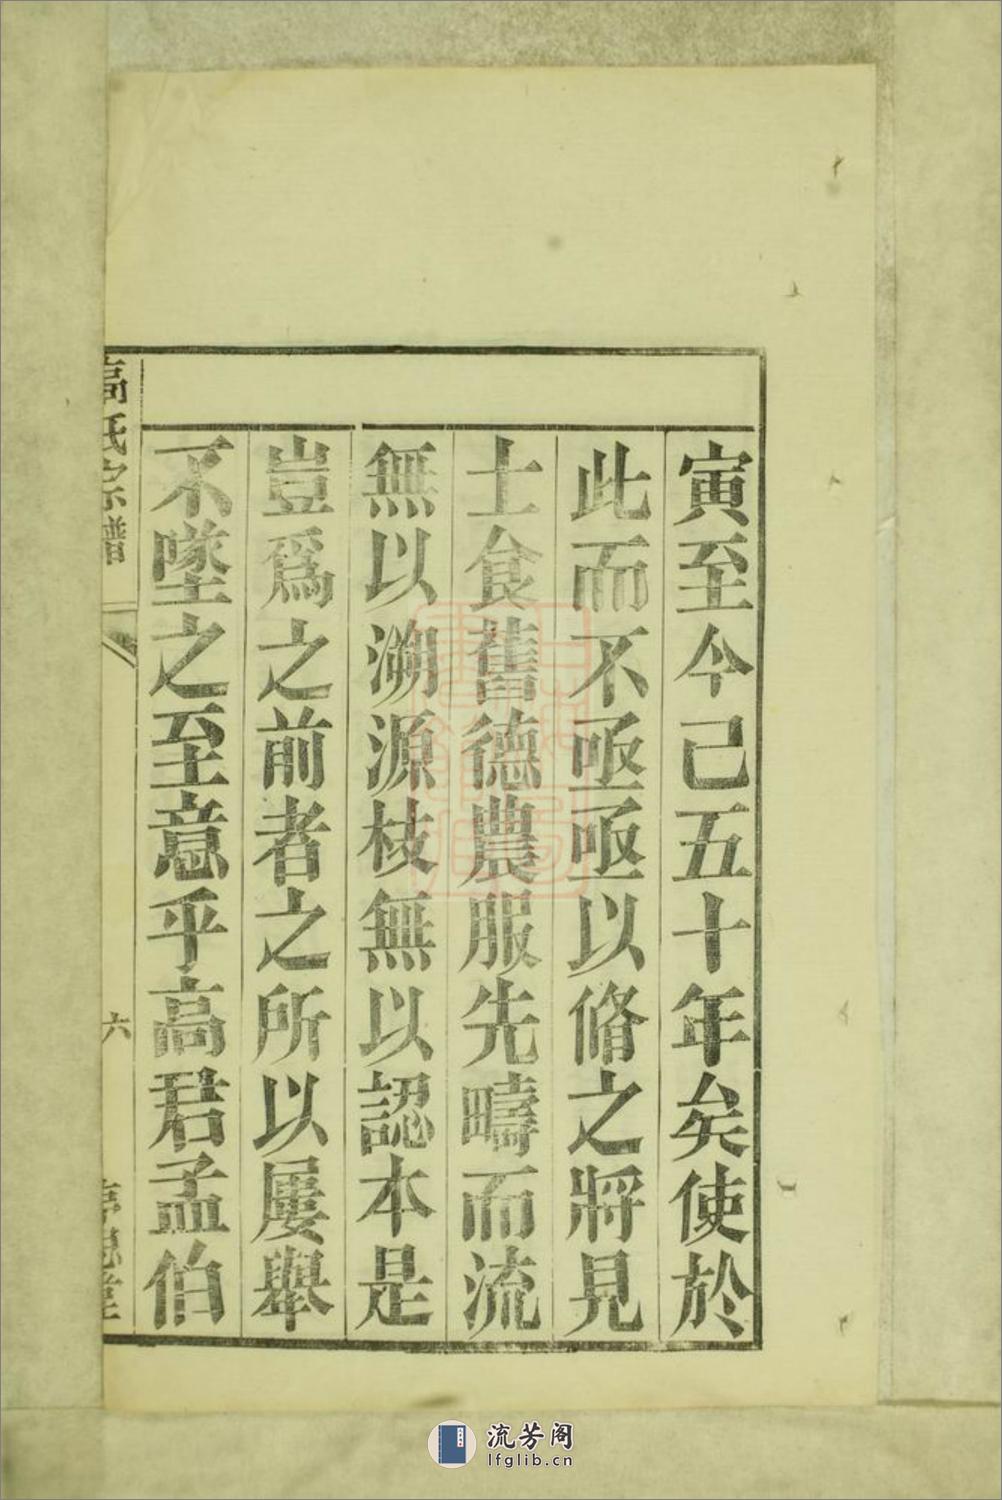 寅至今己五十年矣使於
此而不亟亟以脩之將見
士食舊德農服先疇而流
無以溯源枝無以認本是
豈爲之前者之所以屢舉
不墜之至意乎高君孟伯
高氏宗譜
六
流芳阁
lfglib.cn